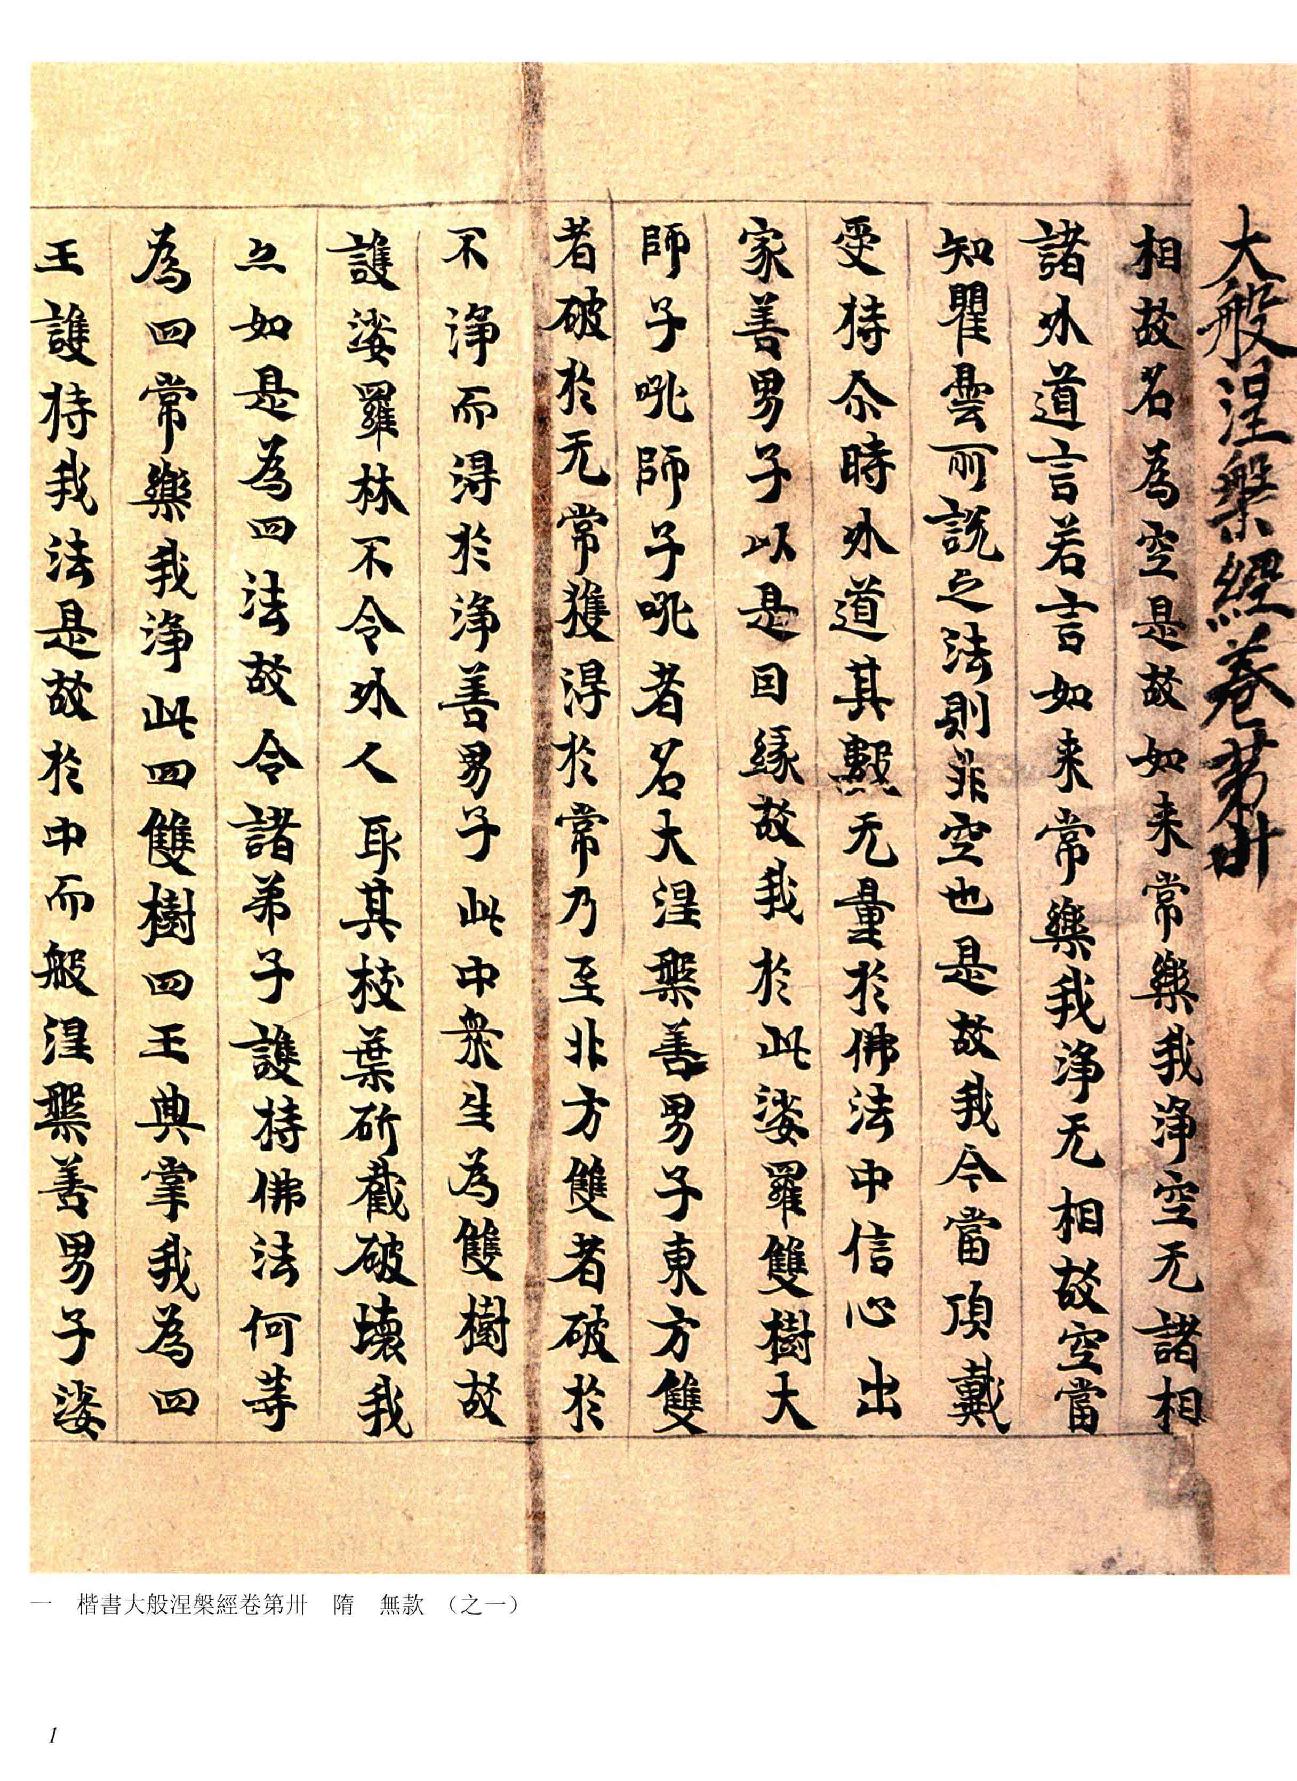 大般涅槃經卷第卅
相故名為空是故如来常樂我淨空无諸相
諸外道言若言如来常樂我淨无相故空當
知瞿曇所說之法則非空也是故我今當頂戴
受持尒時外道其數无量於佛法中信心出
家善男子以是因緣故我於此娑羅雙樹大
師子吼師子吼者名大涅槃善男子東方雙
者破於无常獲得於常乃至北方雙者破於
不淨而得於淨善男子此中衆生為雙樹故
護娑羅林不令外人取其枝葉斫截破壞我
亦如是為四法故令諸弟子護持佛法何等
為四常樂我淨此四雙樹四王典掌我為四
王護持我法是故於中而般涅槃善男子娑
一　楷書大般涅槃經卷第卅　隋　無款　（之一）
1